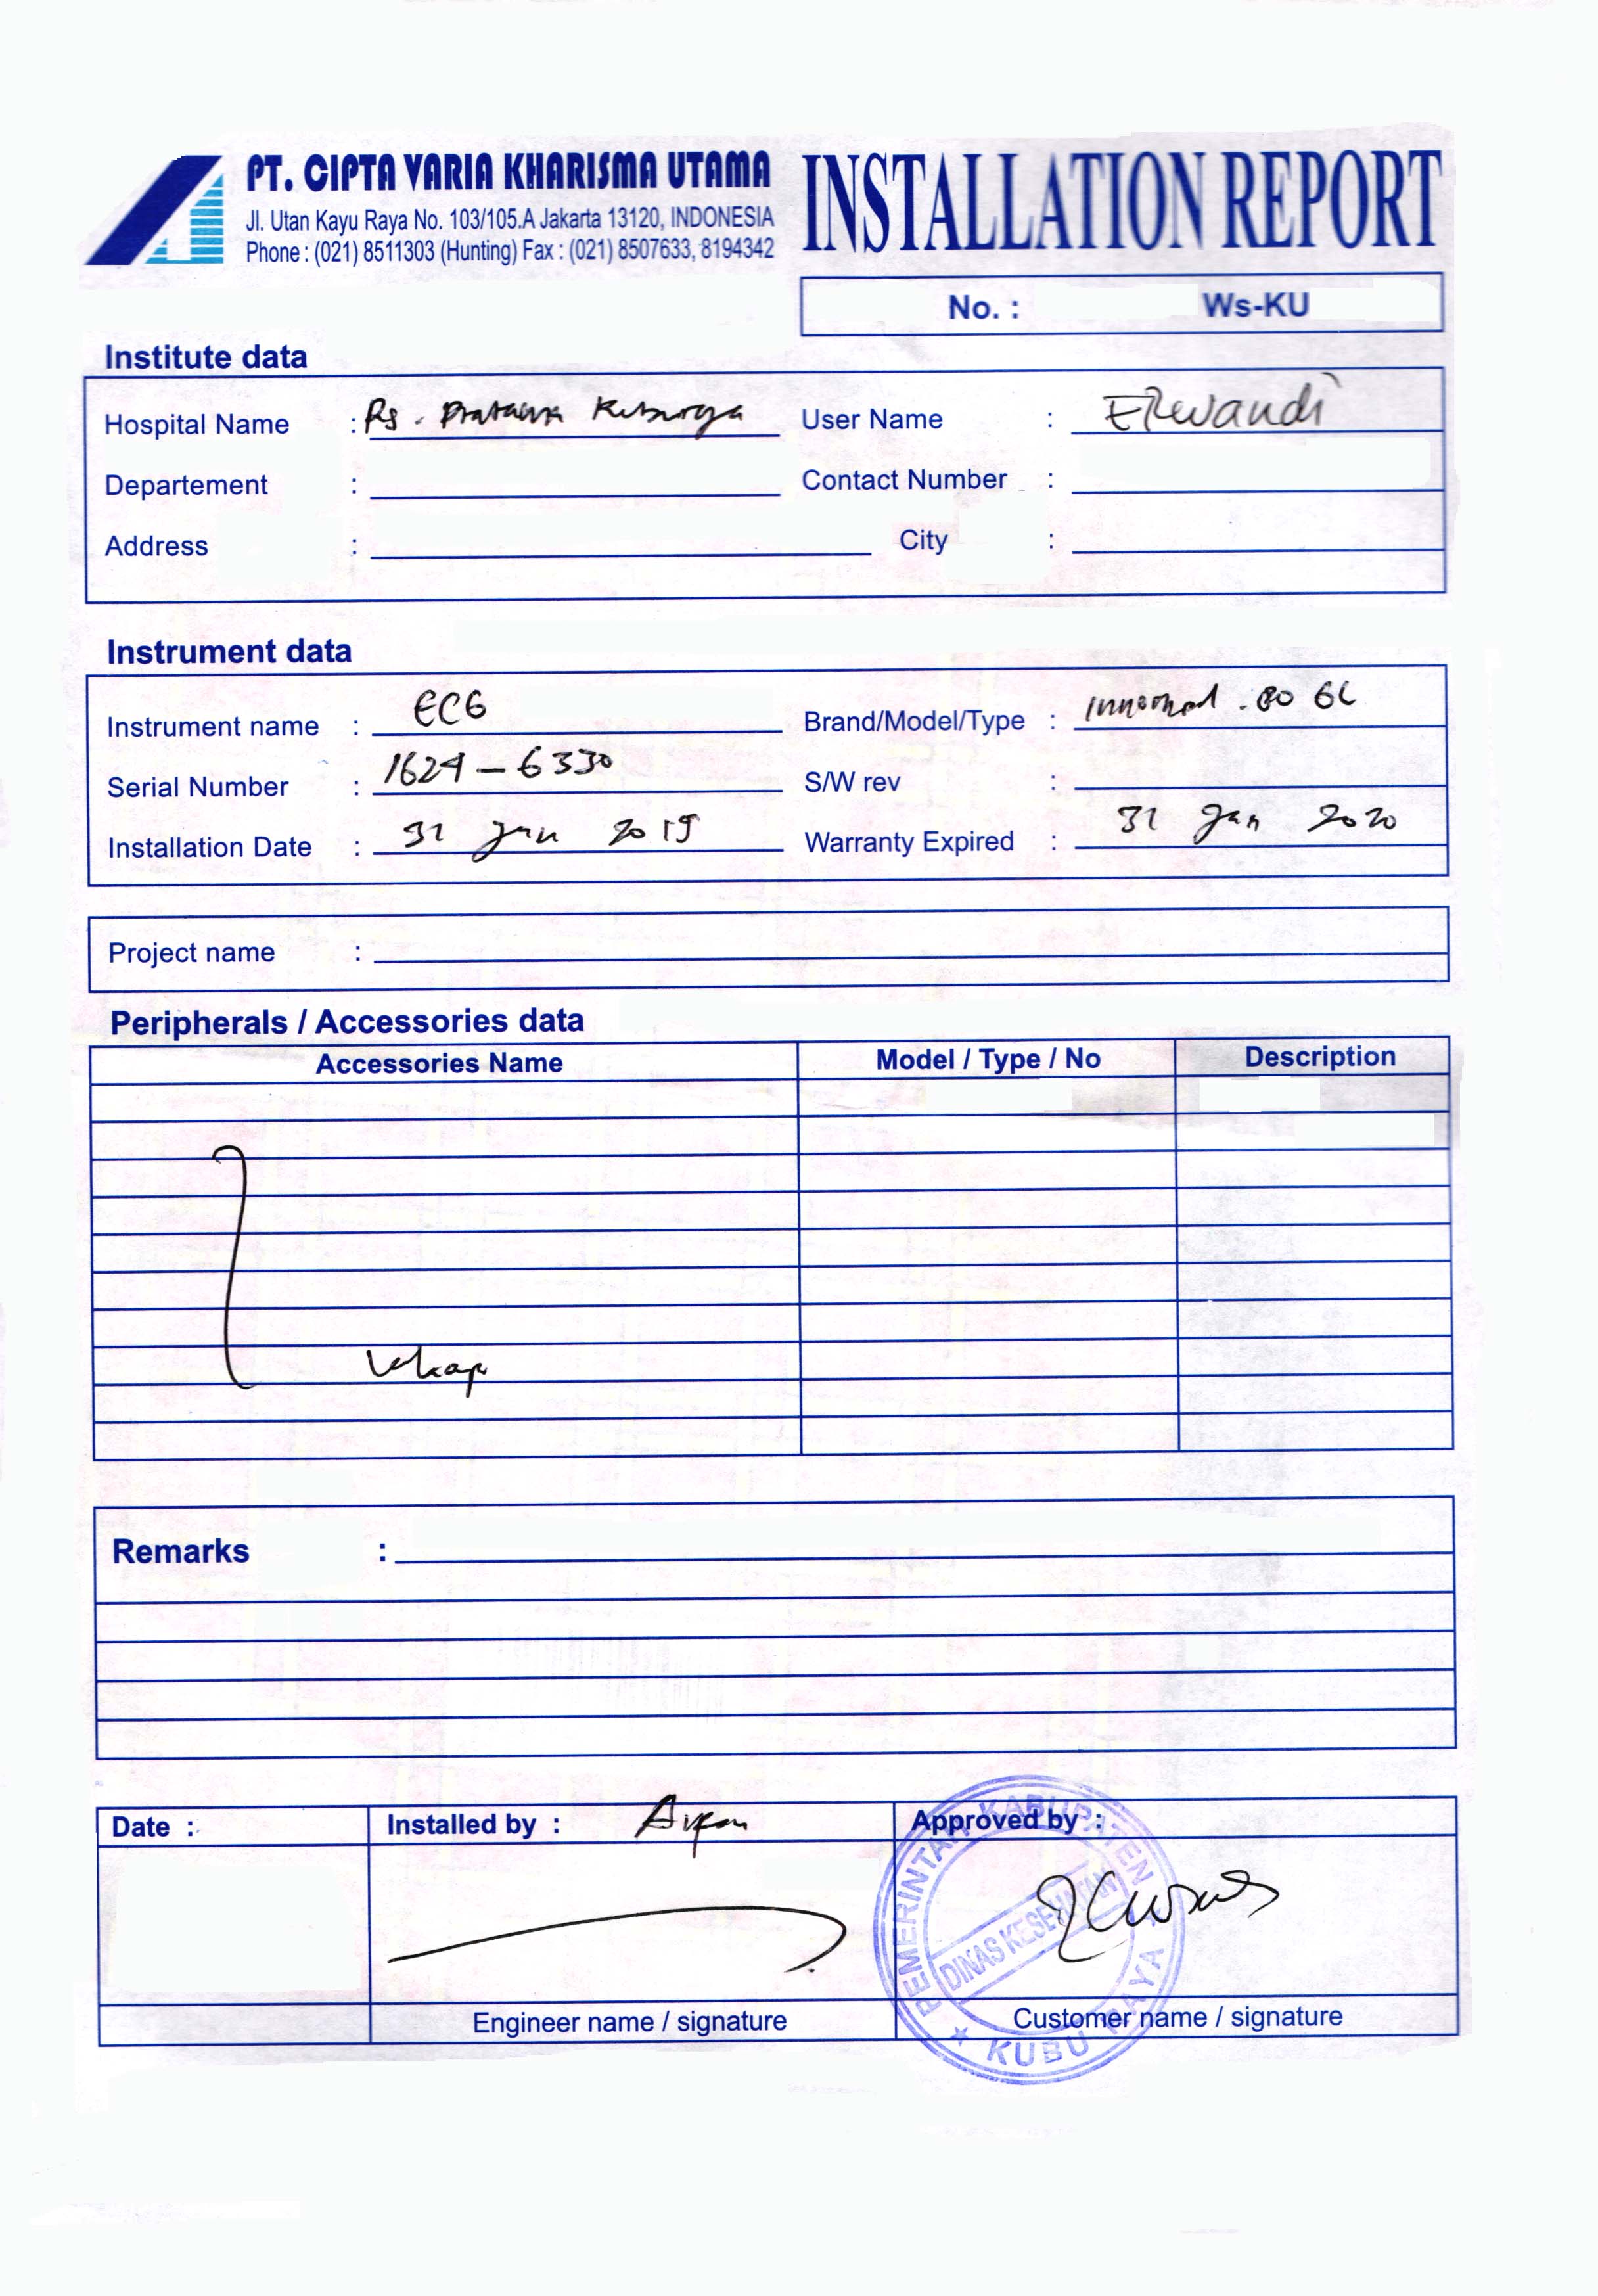 PT. CIPTA VARIA KHARISMA UTAMA
Jl. Utan Kayu Raya No. 103/105.A Jakarta 13120, INDONESIA
Phone : (021) 8511303 (Hunting) Fax : (021) 8507633, 8194342
INSTALLATION REPORT
No. : Ws-KU
Institute data
Hospital Name : Rs. Pratama Kuburaya User Name : ERwandi
Departement : Contact Number :
Address : City :
Instrument data
Instrument name : ECG Brand/Model/Type :
Serial Number : 1624 - 6330 S/W rev :
Installation Date : 31 Jan 2019 Warranty Expired : 31 Jan 2020
Project name :
Peripherals / Accessories data
Accessories Name Model / Type / No Description
Lekap
Remarks :
Date : Installed by : Approved by :
PEMERINTAH KABUPATEN
DINAS KESEHATAN
KUBU RAYA
Engineer name / signature Customer name / signature